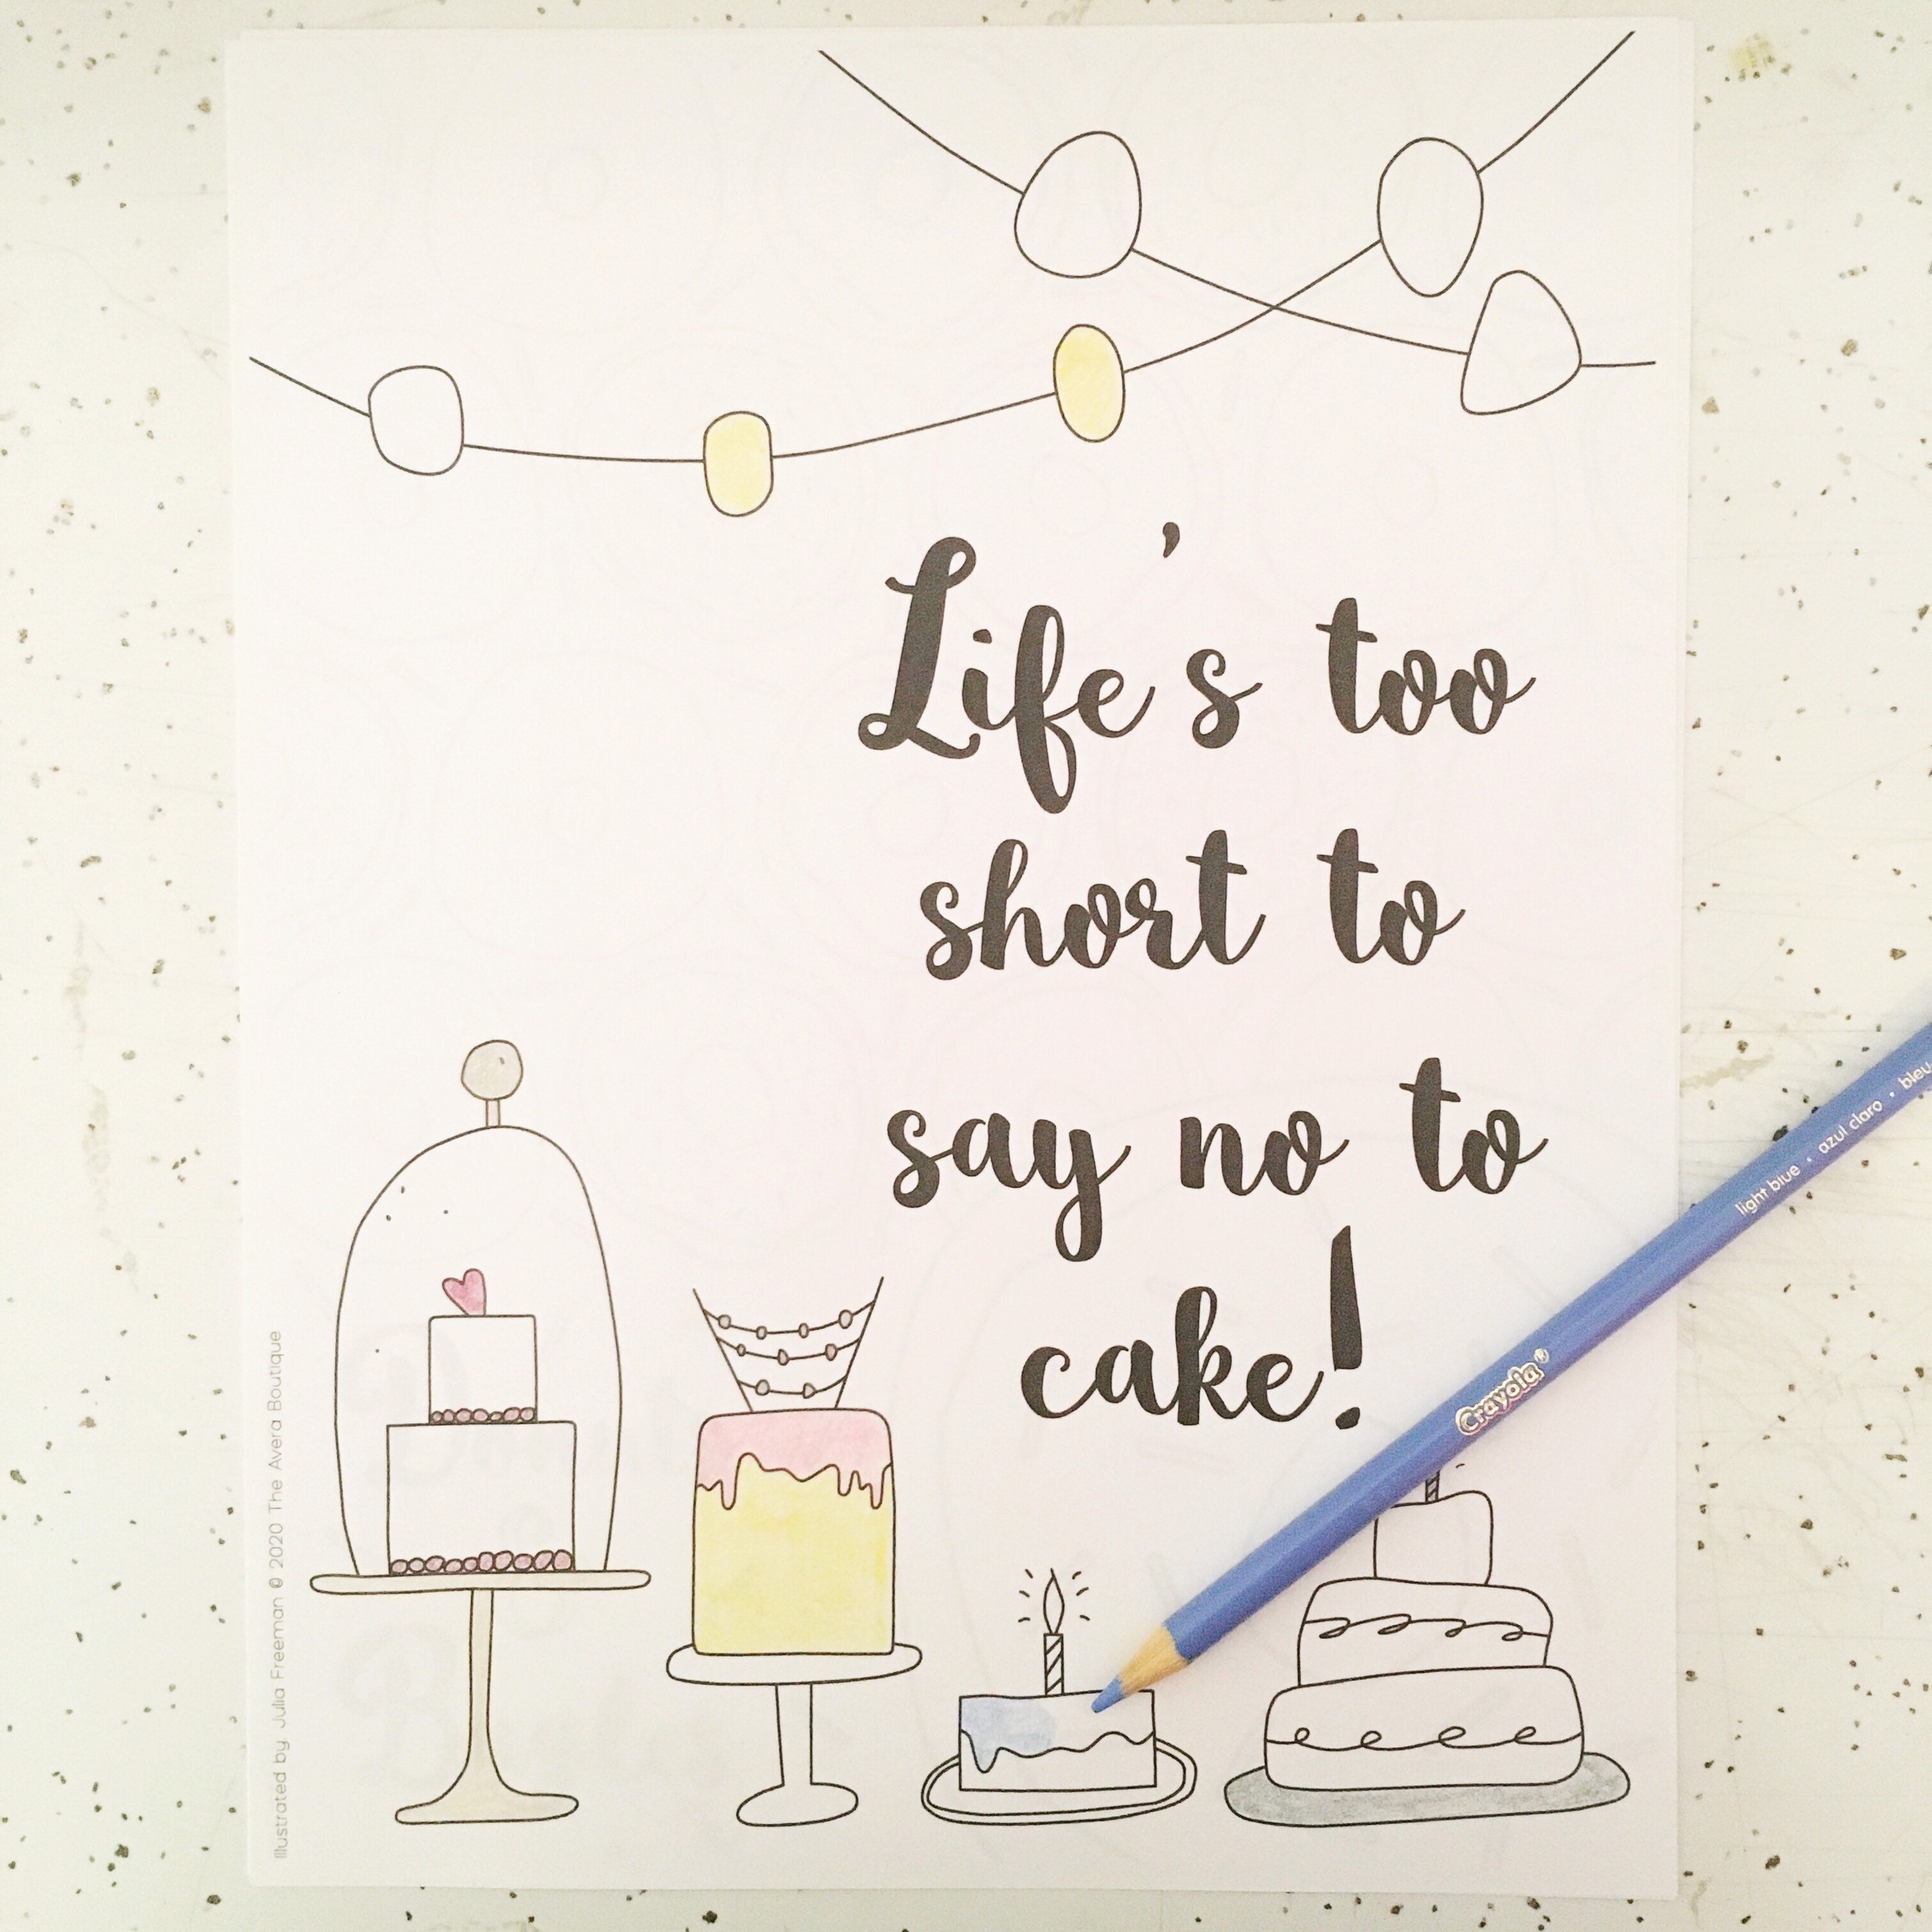 Life's too
short to
say no to
cake!
Crayola®
light blue • azul claro • bleu
Illustrated by Julia Freeman © 2020 The Avera Boutique